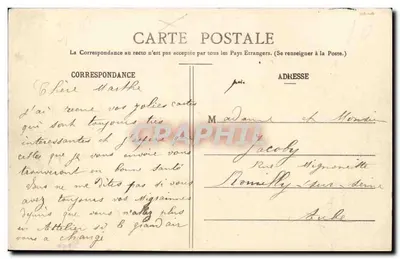 CARTE POSTALE
La Correspondance au recto n'est pas acceptée par tous les Pays Etrangers. (Se renseigner à la Poste.)
CORRESPONDANCE
Chère Marthe
J'ai recue vos jolies cartes
qui sont toujours très
interessantes et j'espère
celles que je vous envoie vous
trouveront en bonne santé
Vous ne me dites pas si vous
avez toujours vos Migraines
depuis que vous n'allez plus
en Attelier si le grand air
vous a changé
ADRESSE
Madame et Monsieur
Jacoby
Rue Mignonette
Romilly sur Seine
Aube